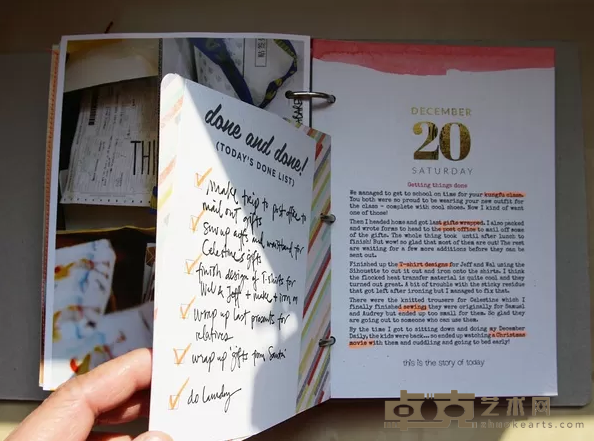 THI
done and done!
(TODAY'S DONE LIST)
make trip to post office to
mail out gifts
swap apts and waistband for
Celestine's gifts
finish design of T-shirts for
Wil & Jeff + make + iron on
wrap up last presents for
relatives
wrap up gifts from Santa
do laundry
DECEMBER
20
SATURDAY
Getting things done
We managed to get to school on time for your kungfu class.
You both were so proud to be wearing your new outfit for
the class - complete with cool shoes. Now I kind of want
one of those!
Then I headed home and got last gifts wrapped. I also packed
and wrote forms to head to the post office to mail off some
of the gifts. The whole thing took until after lunch to
finish! But wow! so glad that most of them are out! The rest
are waiting for a few more additions before they can be
sent out.
Finished up the T-shirt designs for Jeff and Wal using the
Silhouette to cut it out and iron onto the shirts. I think
the flocked heat transfer material is quite cool and they
turned out great. A bit of trouble with the sticky residue
that got left after ironing but I managed to fix that.
There were the knitted trousers for Celestine which I
finally finished sewing; they were originally for Samuel
and Audrey but ended up too small for them. So glad they
are going out to someone who can use them.
By the time I got to sitting down and doing my December
Daily, the kids were back... so ended up watching a Christmas
movie with them and cuddling and going to bed early!
this is the story of today
卓克艺术网
zhmkearts.com